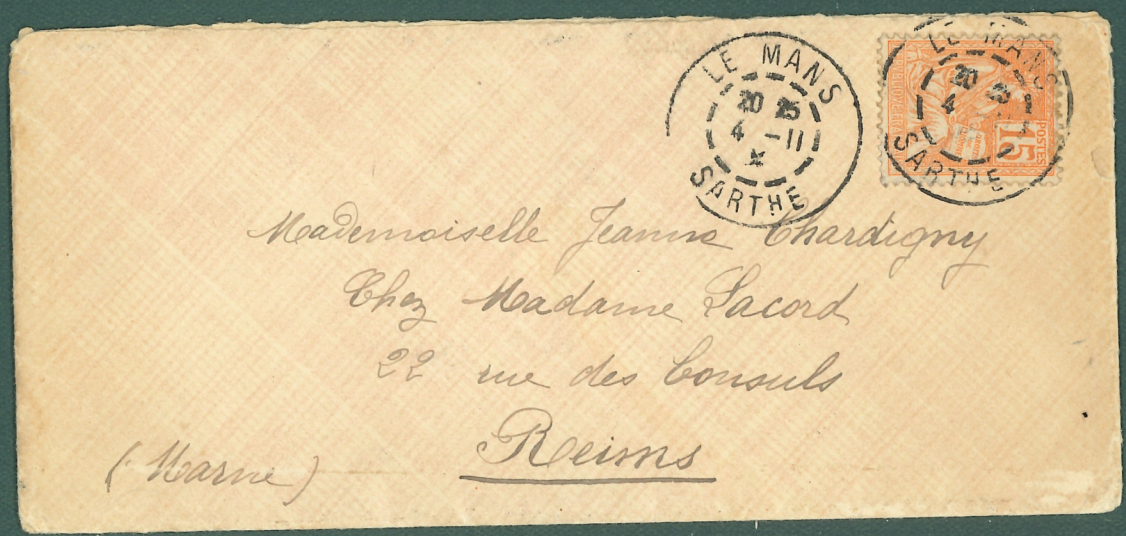 LE MANS
20 25
4 -11
SARTHE
LE MANS
20 25
4
SARTHE
POSTES
15
Mademoiselle Jeanne Chardigny
Chez Madame Lacord
22 rue des Consuls
Reims
(Marne)